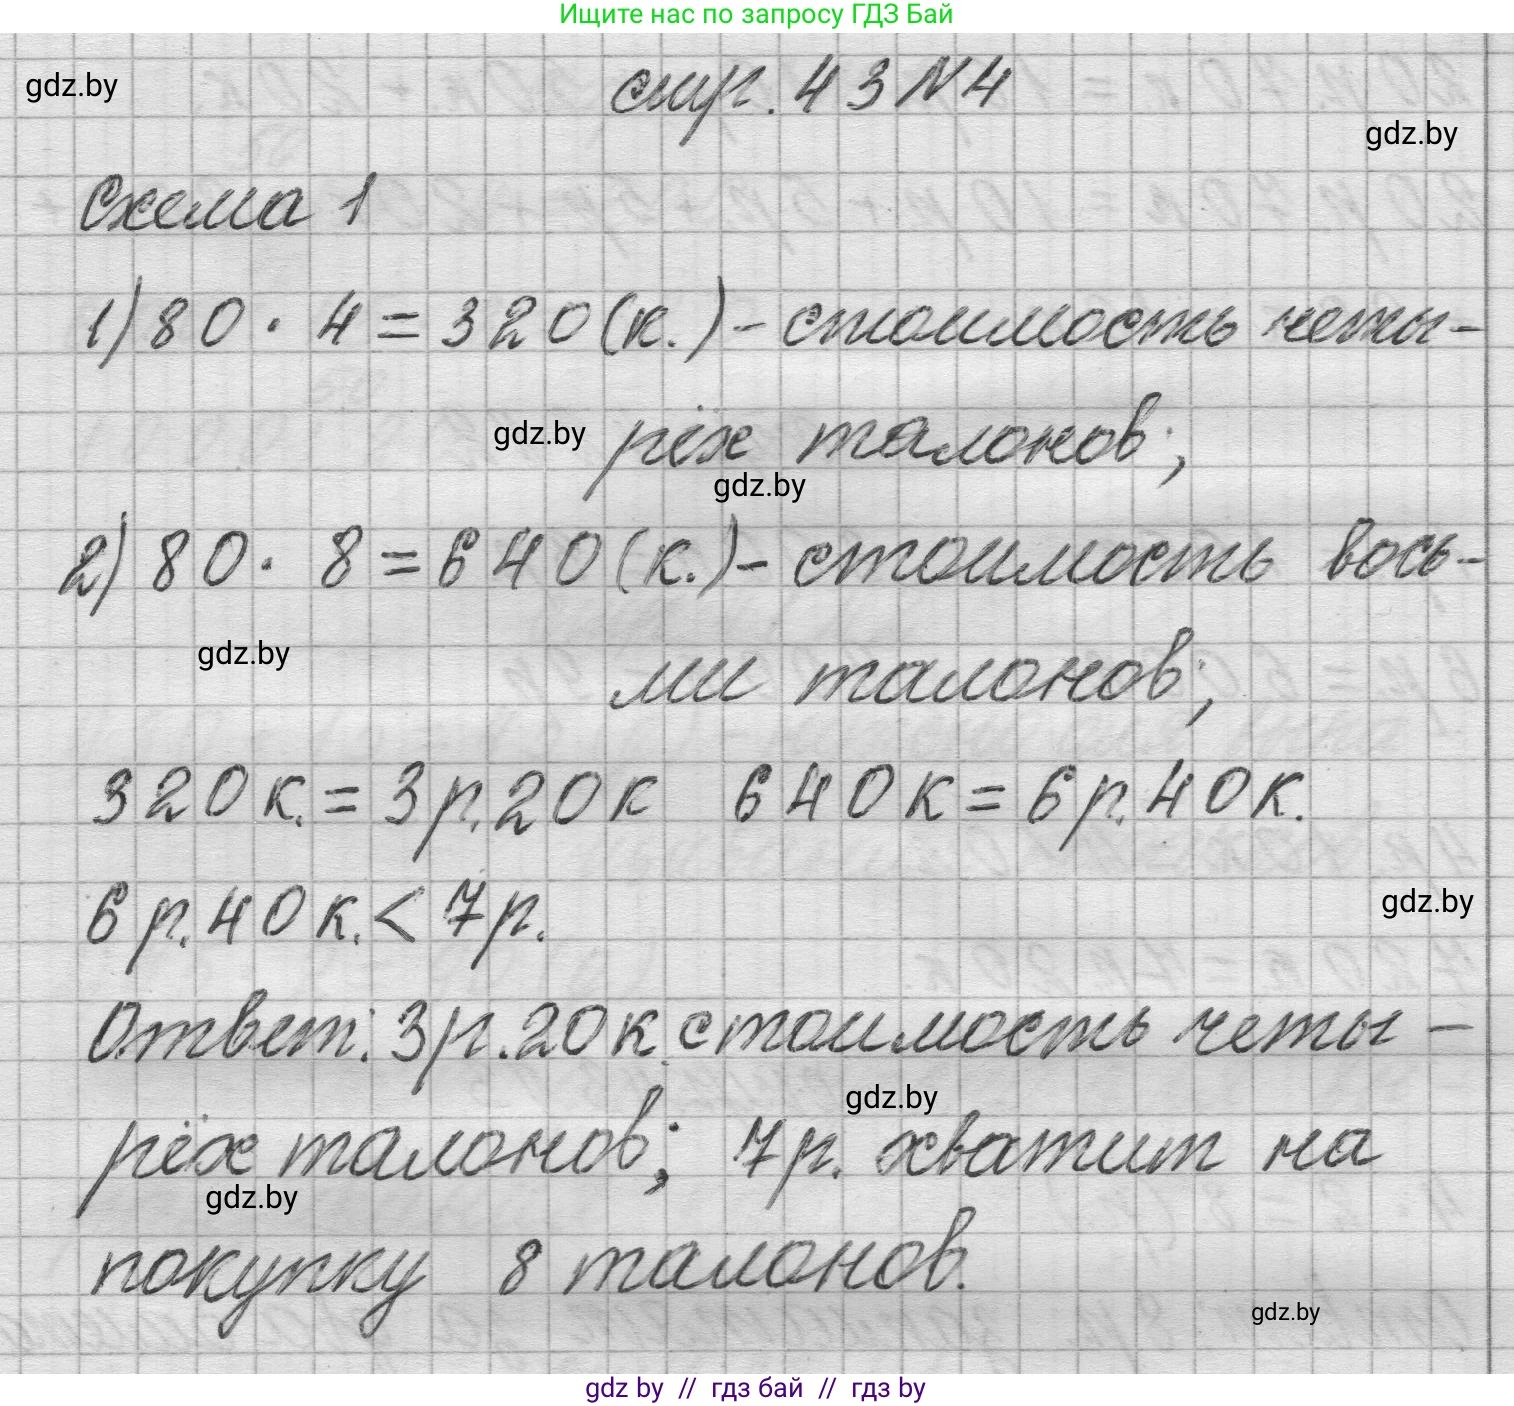 Ищите нас по запросу ГДЗ Бай
gdz.by
стр. 43 N 4
gdz.by
Схема 1
1) 80 · 4 = 320 (к.) - стоимость четы-
gdz.by
рёх талонов;
gdz.by
2) 80 · 8 = 640 (к.) - стоимость вось-
gdz.by
ми талонов;
320 к. = 3 р. 20 к 640 к = 6 р. 40 к.
6 р. 40 к. < 7 р.
gdz.by
Ответ: 3 р. 20 к. стоимость четы-
gdz.by
рёх талонов; 7 р. хватит на
gdz.by
покупку 8 талонов.
gdz.by
gdz by // гдз бай // гдз by